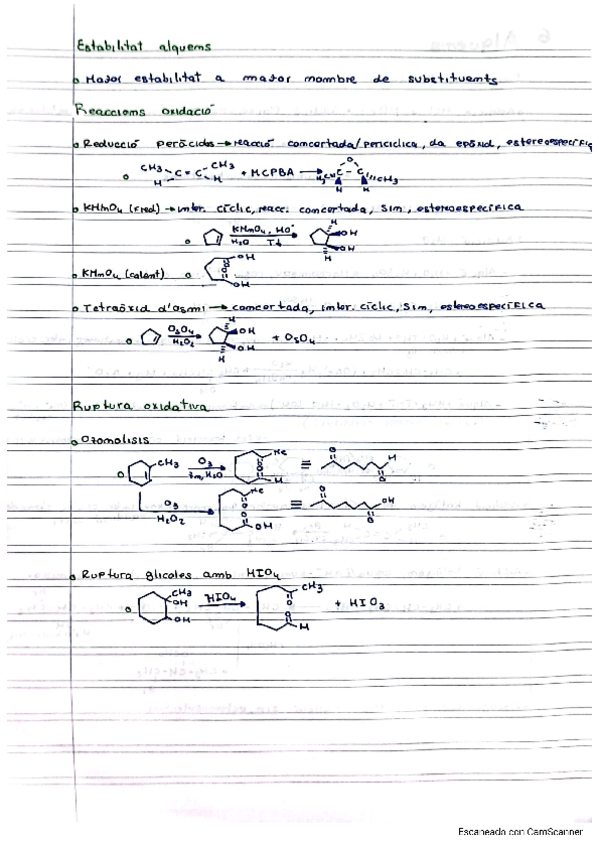 Estabilitat alquens
Major estabilitat a major nombre de substituents
Reaccions oxidació
Reducció peràcides → reacció concertada/periciclica, da epòxid, estereoespecífic
CH3 C = C CH3 H H + MCPBA → O H3C C - C CH3 H H
KMnO4 (fred) → inbr. cíclic, reacc. concertada, sin, estereoespecífica
KMnO4, HO- H2O T↓ H OH OH H
KMnO4 (calent) OH O O OH
Tetraòxid d'osmi → concertada, inbr. cíclic, sin, estereoespecífica
OsO4 H2O2 H OH OH H + OsO4
Ruptura oxidativa
Ozonolisis
CH3 O3 Zn, H2O Me O O H ≡ O O H
O3 H2O2 Me O O OH ≡ O O OH
Ruptura glicoles amb HIO4
CH3 OH OH HIO4 CH3 O O H + HIO3
Escaneado con CamScanner